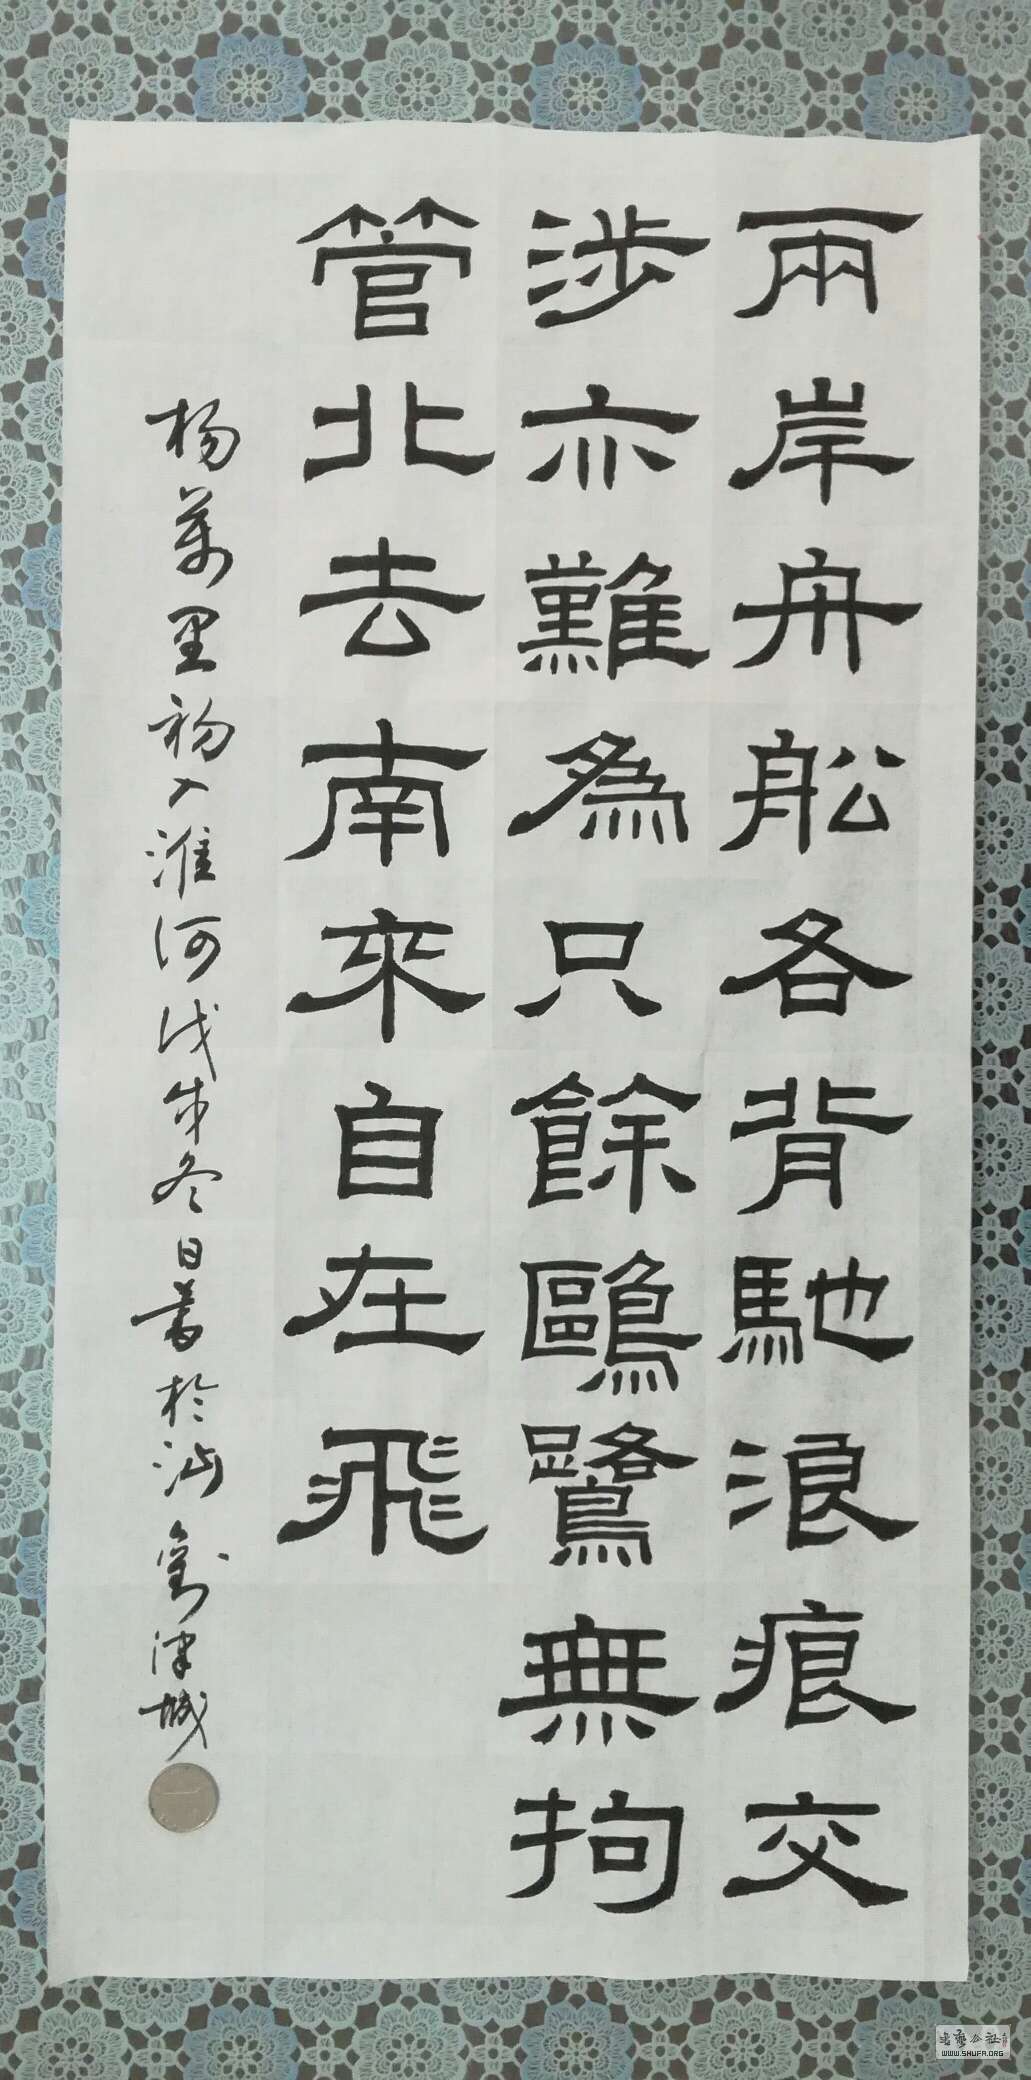 兩岸舟舩各背馳浪痕交
涉亦難為只餘鷗鷺無拘
管北去南來自在飛
杨萬里初入淮河戊戌冬日書於汕劉津城
WWW.SHUFA.ORG